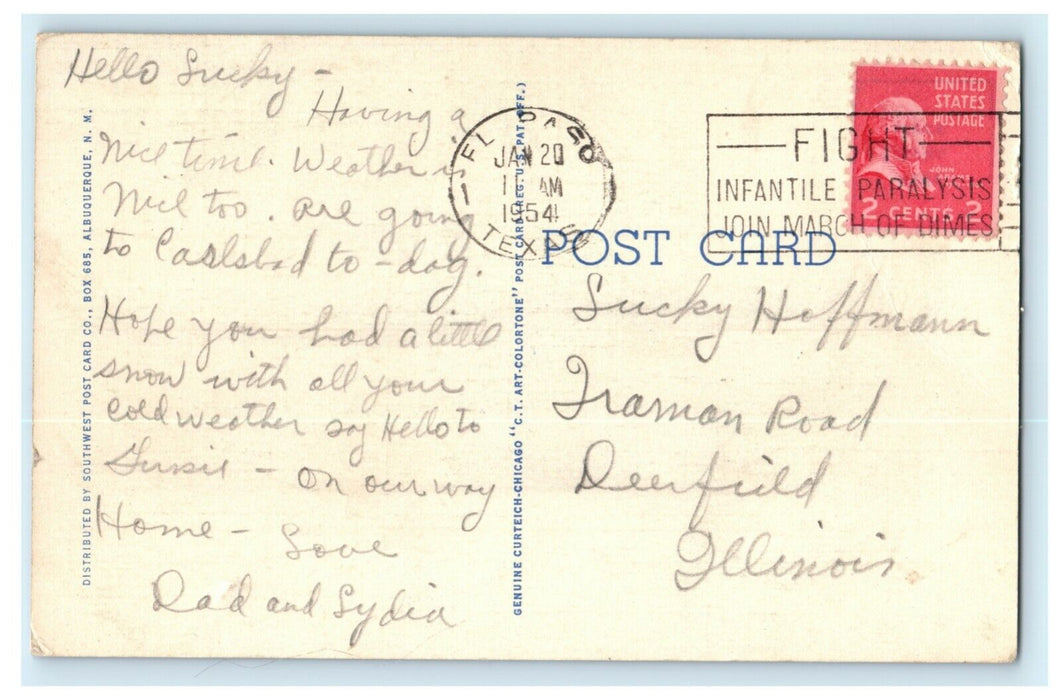 Hello Sucky -
Having a
nice time. Weather is
nice too. are going
to Carlsbad to-day.
Hope you had a little
snow with all your
cold weather say Hello to
- on our way
Home - Love
Dad and Sydia
DISTRIBUTED BY SOUTHWEST POST CARD CO., BOX 685, ALBUQUERQUE, N. M.
GENUINE CURTEICH-CHICAGO "C.T. ART-COLORTONE" POST CARD (REG. U. S. PAT. OFF.)
EL PASO
JAN 20
11 AM
1954
TEXAS
FIGHT
INFANTILE PARALYSIS
JOIN MARCH OF DIMES
UNITED
STATES
POSTAGE
JOHN
ADAMS
2 CENTS 2
POST CARD
Sucky Hoffmann
Road
Deerfield
Illinois